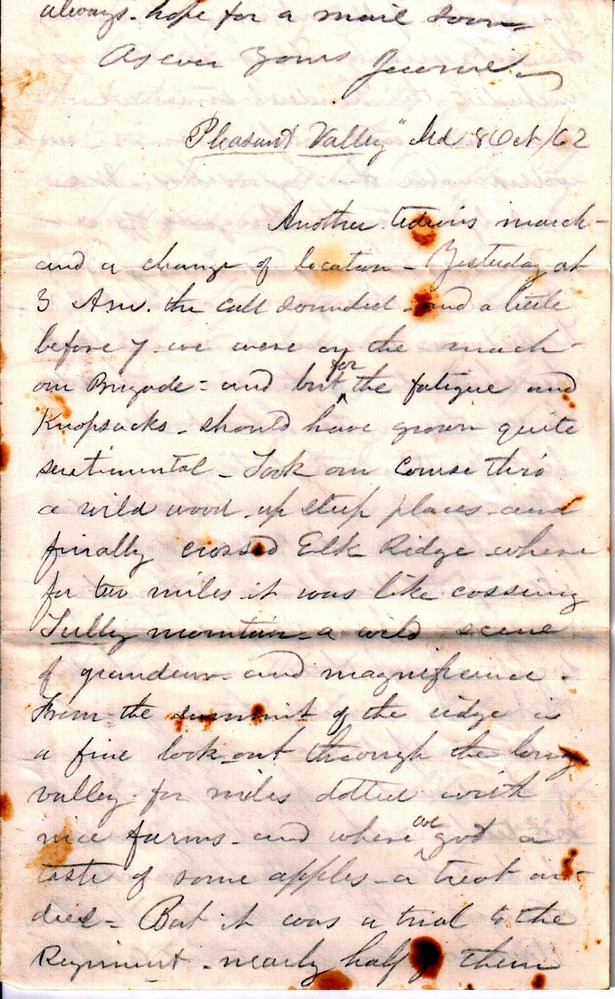 always - hope for a mail soon
As ever Yours Jerome
"Pleasant Valley" Md 8 Oct /62
Another tedious march -
and a change of location - Yesterday at
3 Am. the call sounded - and a little
before 7 we were on the march -
our Brigade - and but for the fatigue and
Knapsacks - should have grown quite
sentimental - Took our course thro
a wild wood - up steep places - and
finally crossed Elk Ridge where
for two miles it was like cossing
mountain - a wild scene
of grandeur - and magnificence -
From the summit of the ridge is
a fine look out through the long
valley - for miles dotted with
nice farms - and where we got a
taste of some apples - a treat in-
deed - But it was a trial to the
Regiment - nearly half of them